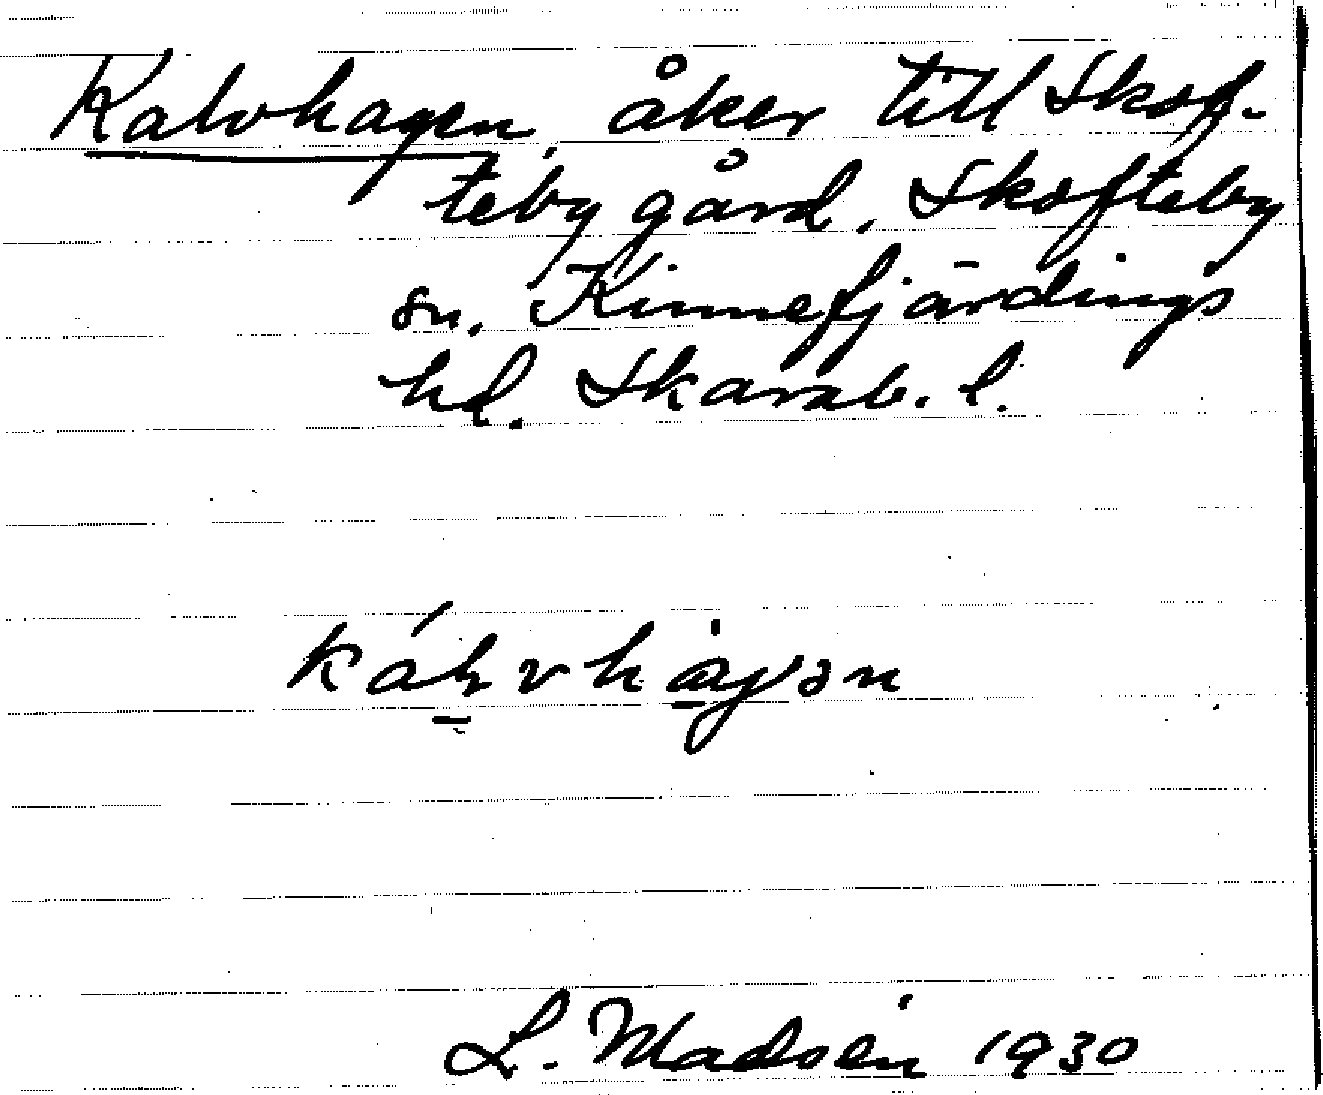 Kalvhagen, åker till Skof-
teby gård, Skofteby
sn. Kinnefjärdings
hd. Skarab. l.
L. Madsén 1930